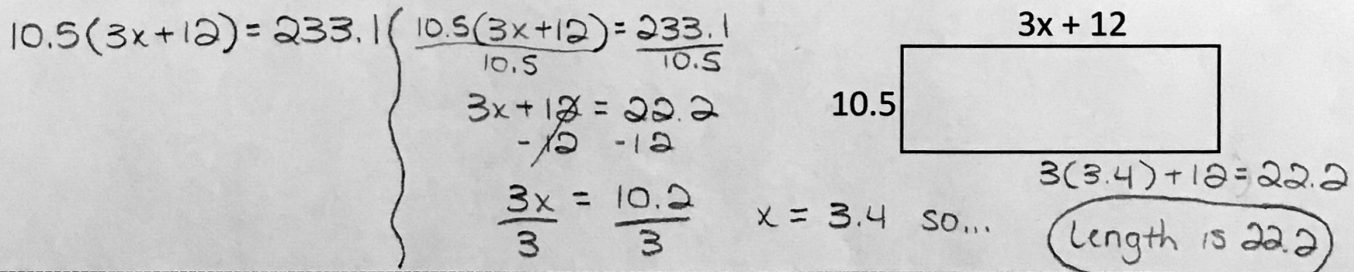 10.5(3x+12) = 233.1
10.5(3x+12) = 233.1
10.5 10.5
3x + 12 = 22.2
-12 -12
3x = 10.2
3 3
x = 3.4 so...
3x + 12
10.5
3(3.4) + 12 = 22.2
Length is 22.2